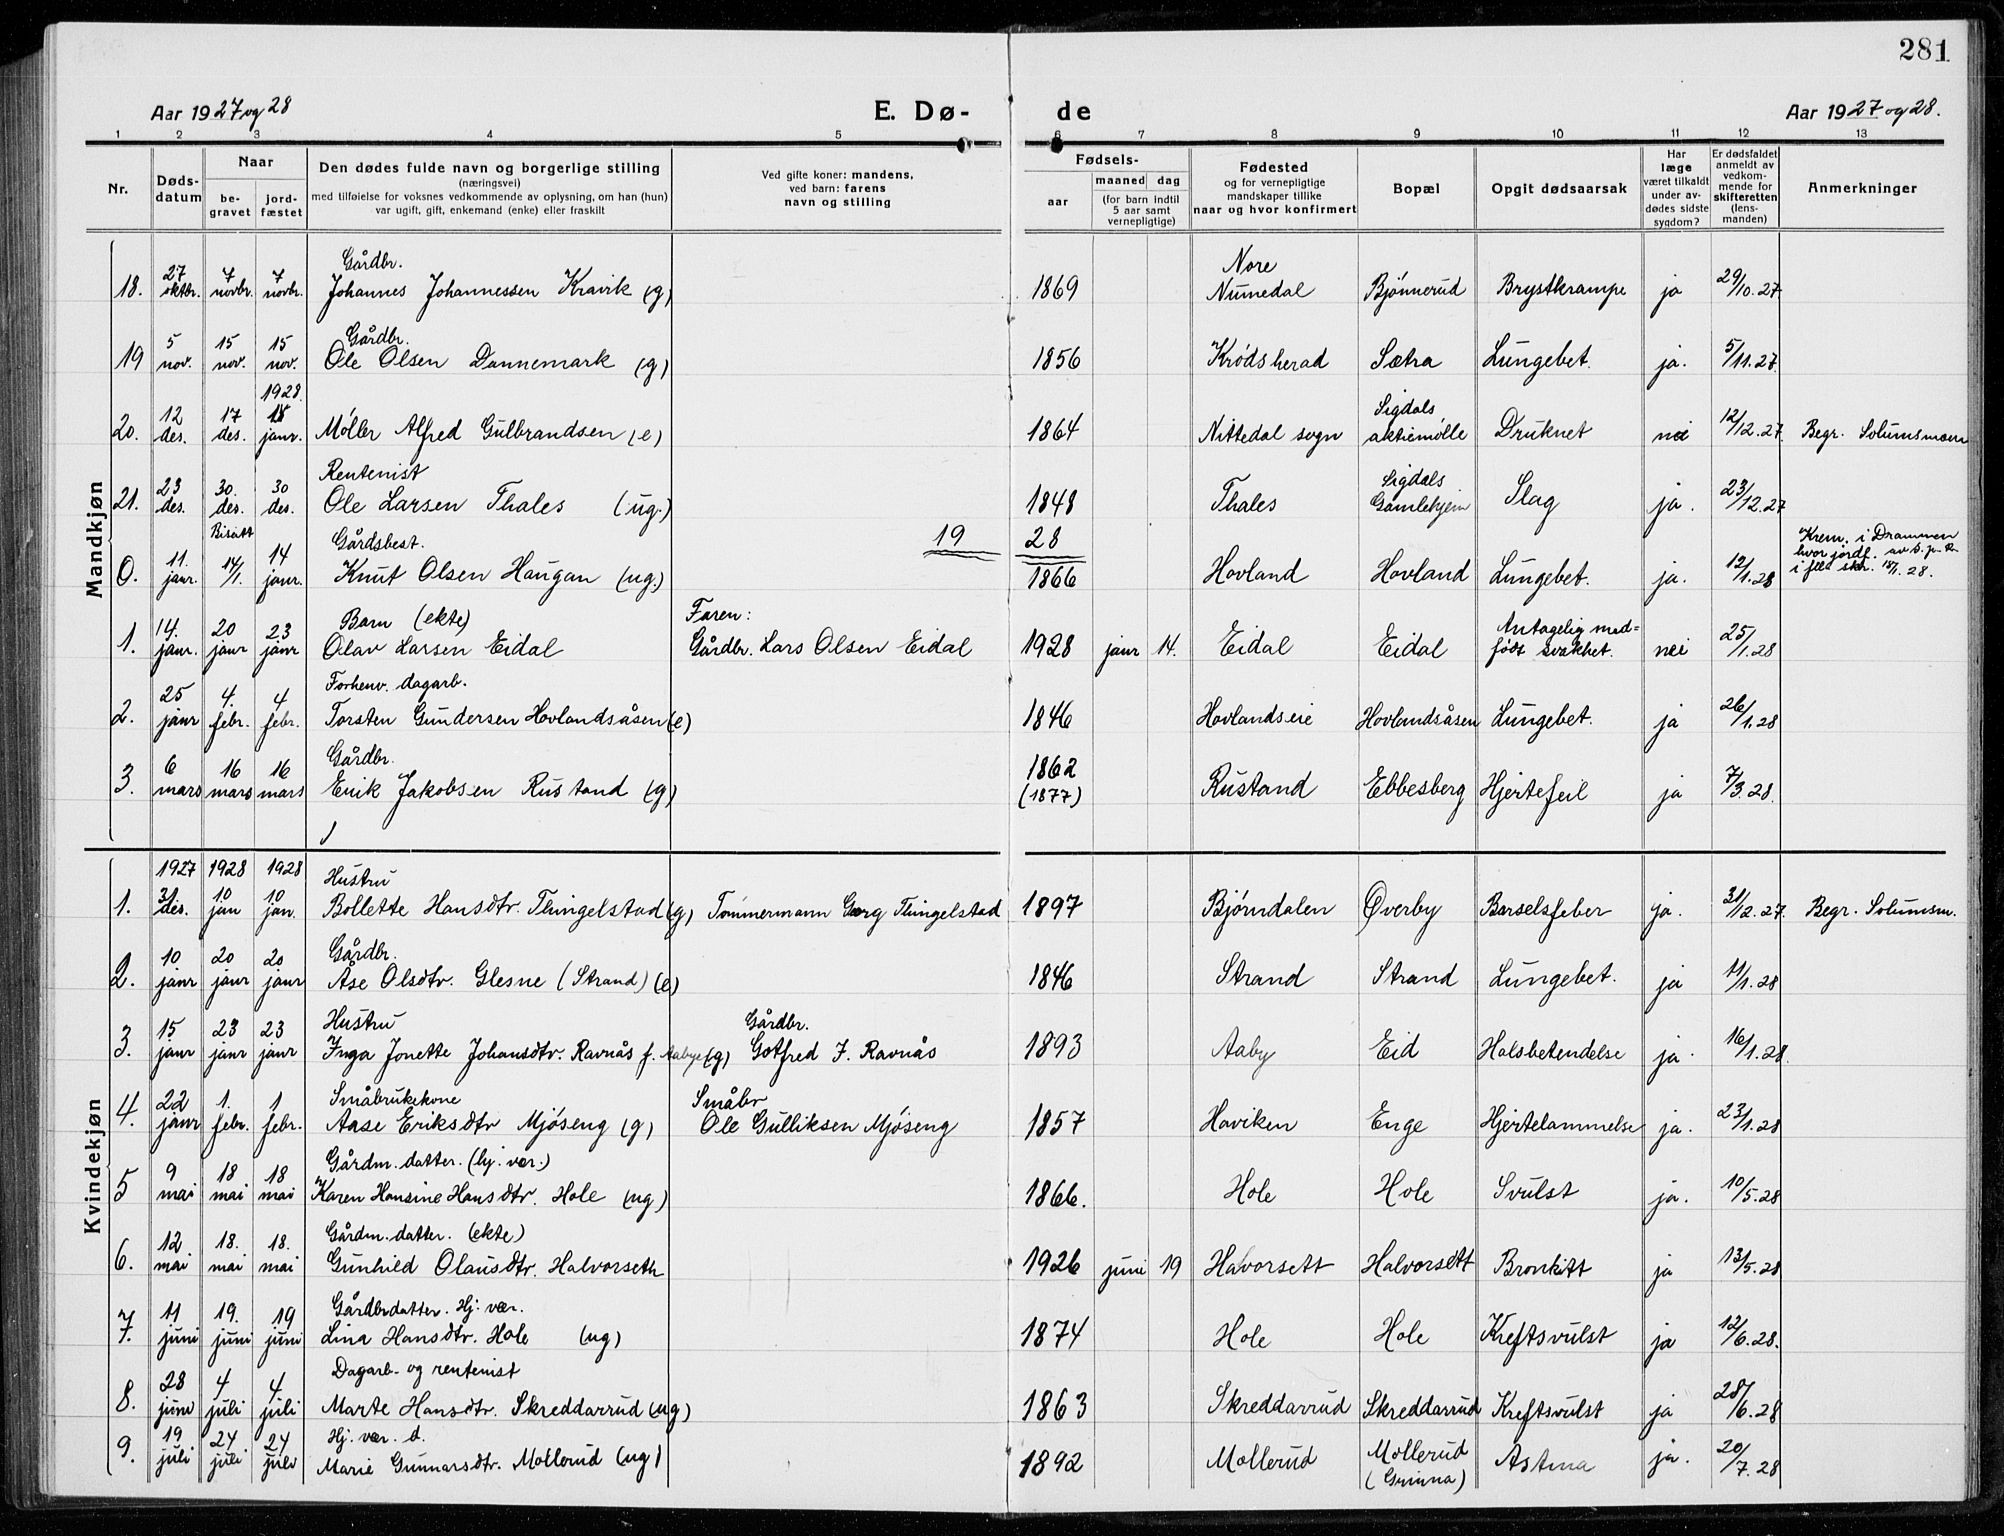 281
Aar 1927 og 28
E. Dø-
de
Aar 1927 og 28.
1 2 3 4 5 6 7 8 9 10 11 12 13
Nr.
Døds-
datum
Naar
be-
gravet
jord-
fæstet
Den dødes fulde navn og borgerlige stilling
(næringsvei)
med tilføielse for voksnes vedkommende av oplysning, om han (hun)
var ugift, gift, enkemand (enke) eller fraskilt
Ved gifte koner: mandens,
ved barn: farens
navn og stilling
Fødsels-
aar
maaned dag
(for barn indtil
5 aar samt
vernepligtige)
Fødested
og for vernepligtige
mandskaper tillike
naar og hvor konfirmert
Bopæl
Opgit dødsaarsak
Har
læge
været tilkaldt
under av-
dødes sidste
sygdom?
Er dødsfaldet
anmeldt av
vedkom-
mende for
skifteretten
(lens-
manden)
Anmerkninger
Mandkjøn
27 7 7 Gårdbr. Nore
18. oktbr. novbr. novbr. Johannes Johannessen Kravik (g) 1869 Numedal Bjønnerud Brystkrampe ja 29/10.27
5 15 15 Gårdbr.
19 nov. nov. nov. Ole Olsen Dannemark (g) 1856 Krødsherad Sætra Lungebet. ja. 5/11.27
1928.
12 17 18 Sigdals
20. des. des. janr. Møller Alfred Gulbrandsen (e) 1864 Nittedal sogn aktiemølle Druknet nei 12/12.27 Begr. Solumsmoen
23 30. 30 Rentenist Sigdals
21. des. des. des. Ole Larsen Thales (ug.) 1848 Thales Gamlehjem Slag ja. 23/12.27
Bisatt
19 28
11. 14/1. 14 Gårdsbest. Krem. i Drammen
hvor jordf. av s. pr.
0. janr. janr. Knut Olsen Haugan (ug.) 1866 Hovland Hovland Lungebet. ja. 12/1.28 28.
14. 20 23 Barn (ekte) Faren: Antagelig med=
1. janr. janr janr Olav Larsen Eidal Gårdbr. Lars Olsen Eidal 1928 janr 14. Eidal Eidal født svakhet. nei 25/1.28
25 4. 4 Forhenv. dagarb.
2. janr febr. febr. Torsten Gundersen Hovlandsåsen (e) 1846 Hovlandseie Hovlandsåsen Lungebet. ja 26/1.28
6 16 16 Gårdbr. 1862
3. mars mars mars Erik Jakobsen Rustand (g) (1877) Rustand Ebbesberg Hjertefeil ja 7/3.28.
Kvindekjøn
1927 1928 1928 Hustru
1. 31 des. 10 jan 10 jan. Bollette Hansdtr. Thingelstad (g) Tømmermann Georg Thingelstad 1897 Bjørndalen Øverby Barselsfeber ja. 31/12.27. Begr. Solumsm.
10 20 20 Gårdbr.
2. janr janr janr Åse Olsdtr. Glesne (Strand) (e) 1846 Strand Strand Lungebet. ja 11/1.28
15 23 23 Hustru Gårdbr.
3. janr janr janr Inga Jonette Johansdtr. Ravnås f. Aabye (g) Gotfred J. Ravnås 1893 Aaby Eid Halsbetendelse ja. 16/1.28.
22 1. 1 Småbrukekone Småbr
4. janr febr. febr. Aase Eriksdtr Mjøseng (g) Ole Gulliksen Mjøseng 1857 Haviken Enge Hjertelammelse ja. 23/1.28
9 18 18 Gårdm. datter. (hj. vær.)
5 mai mai mai Karen Hansine Hansdtr. Hole (ug) 1866. Hole Hole Svulst ja. 10/5.28
12 18. 18. Gårdm. datter. (ekte)
6. mai mai mai Gunhild Olausdtr. Halvorseth 1926 juni 19 Havorsett Halvorsett Bronkitt ja 13/5.28
11 19. 19 Gårdbrdatter. Hj. vær.
7. juni juni juni Lina Hansdtr. Hole (ug) 1874 Hole Hole Kreftsvulst ja 12/6.28.
28 4 4 Dagarb. og rentenist
8. juni juli juli Marte Hansdtr. Skreddarrud (ug) 1863 Skreddarrud Skreddarrud Kreftsvulst ja 28/6.28
19 24 24 Hj. vær. d. Mollerud
9. juli juli juli Marie Gunnarsdtr. Mollerud (ug) 1892 Mollerud (Grinna) Astma ja. 20/7.28